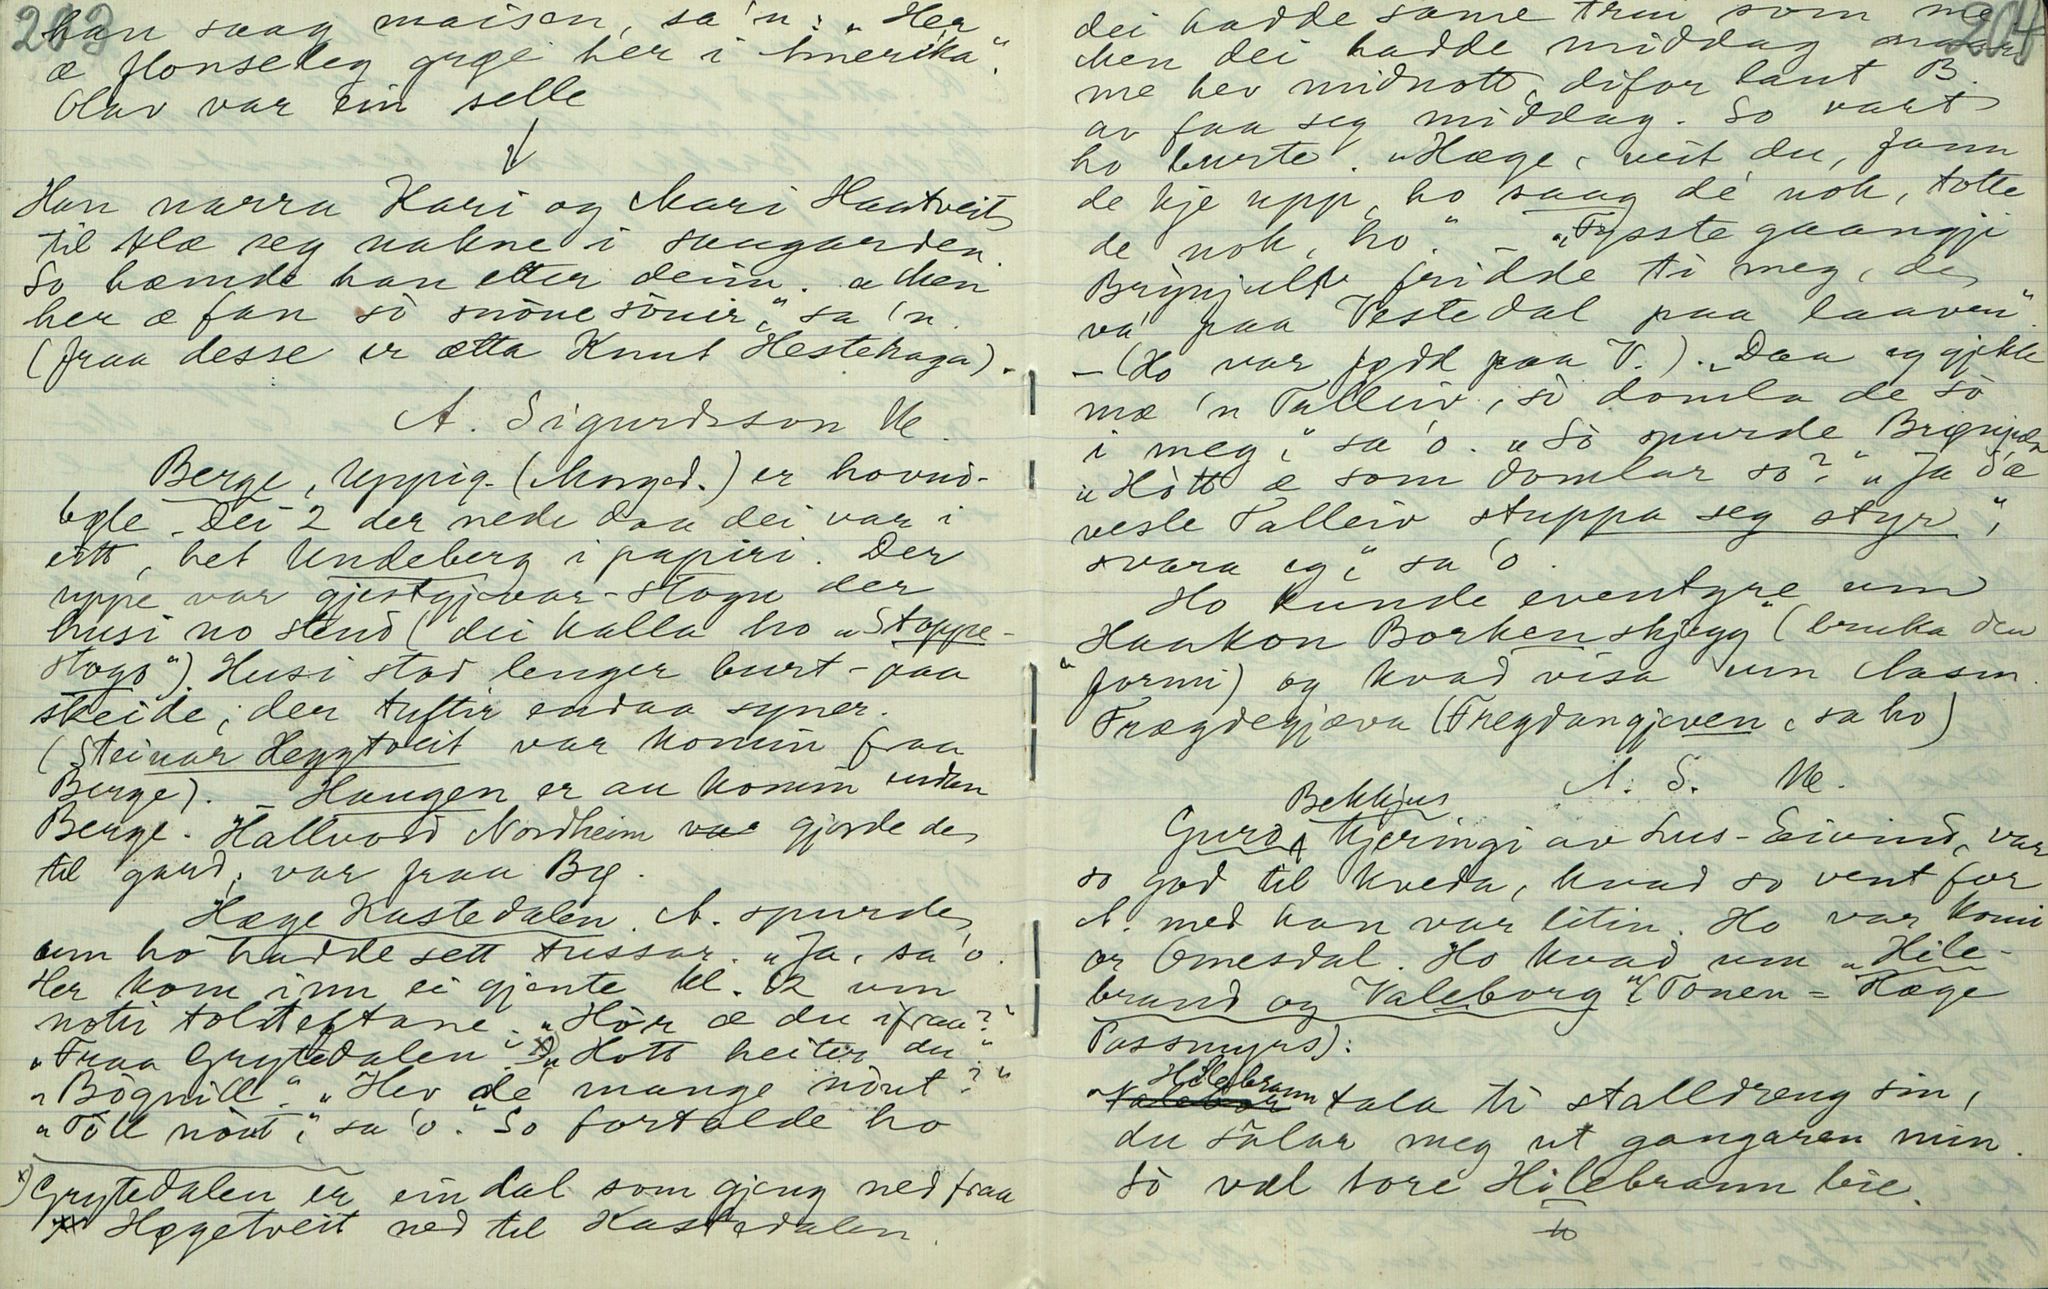 203
han saag maisen, sa'n: "Her
æ flonseleg grøe her i Amerika".
Olav var ein selle
Han narra Kari og Mari Haatveit
til klæ seg nakne i saugarden.
So hæmde han etter deim. "Men
her æ fan sò snöue sönir," sa'n.
(fraa desse er ætta Knut Hestehaga).
A. Sigurdsson Ue.
Berge, Uppig. (Morged.) er hovud-
bøle. Dei 2 der nede daa dei var i
eitt, het Undeberg i papiri. Der
uppe var gjestgjevar-stogu der
husi no stend (dei kalla ho "Stoppe-
stogo"). Husi stod lenger burt - paa
skeide, der tuftir endaa syner.
(Steinar Heggtveit var komin fraa
Berge). - Haugen er au komin undan
Berge. Hallvord Nordheim gjorde de
til gard, var fraa Bø.
Hæge Kastedalen. A. spurde
um ho hadde sett tussar. "Ja, sa'o.
Her kom inn ei gjente kl. 12 um
noti tolsteftane. "Hòr æ du ifraa?"
"Fraa Grytedalen". x) "Hott heiter du".
"Bögnill". "Hev dé mange nöut?"
"Tòll nöut," sa'o." So fortalde ho
x) Grytedalen er ein dal som gjeng ned fraa
Høgetveit ned til Kastedalen.
204
dei hadde same trui som me
Men dei hadde middag naar
me hev midnott, difor laut B.
av faa seg middag. So vart
ho burte. "Hæge, veit du, fann
de kje upp, ho saag dé nok, totte
de nok, ho." - "Fysste gaangji
Brynjulv fridde ti meg, de
va' paa Vestedal paa laaven".
- (Ho var fødd paa V.). "Daa eg gjekk
mæ 'n Talleiv, sò domla de sò
i meg," sa'o. "Sò spurde Brynjulv
"Hòtt æ som domlar so?" "Ja d'æ
vesle Talleiv stuppa seg styr",
svara eg," sa'o.
Ho kunde eventyre um
Haakon Borkenskjegg" (bruka den
formi) og kvad visa um Aasm.
Frægdegjæva (Fregdangjeven, sa ho)
A. S. Ue.
Bekkjus
Guro, kjeringi av Lus-Eivind, var
so god til kveda, kvad so vent for
A. med han var litin. Ho var komi
or Omesdal. Ho kvad um "Hile-
brand og Valeborg" (Tonen = Hæge
Tossmyrs):
Hilebrann
"Valebor tala ti stalldreng sin,
du sålar meg ut gangaren min.
Sò væl tore Hilebrann bie.